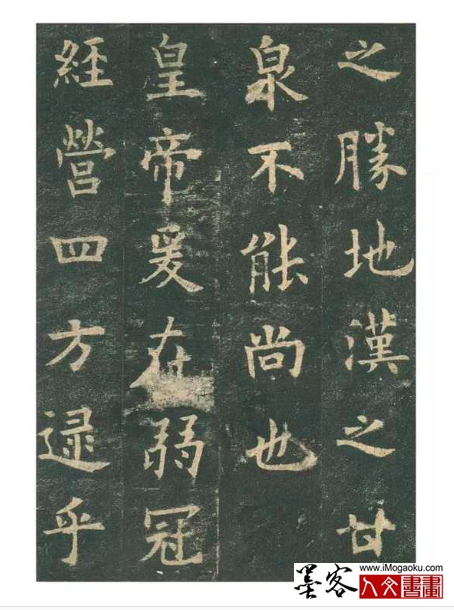 之勝地漢之甘
泉不能尚也
皇帝爰在弱冠
經營四方逯乎
墨客
www.iMogaoku.com
人文書畫